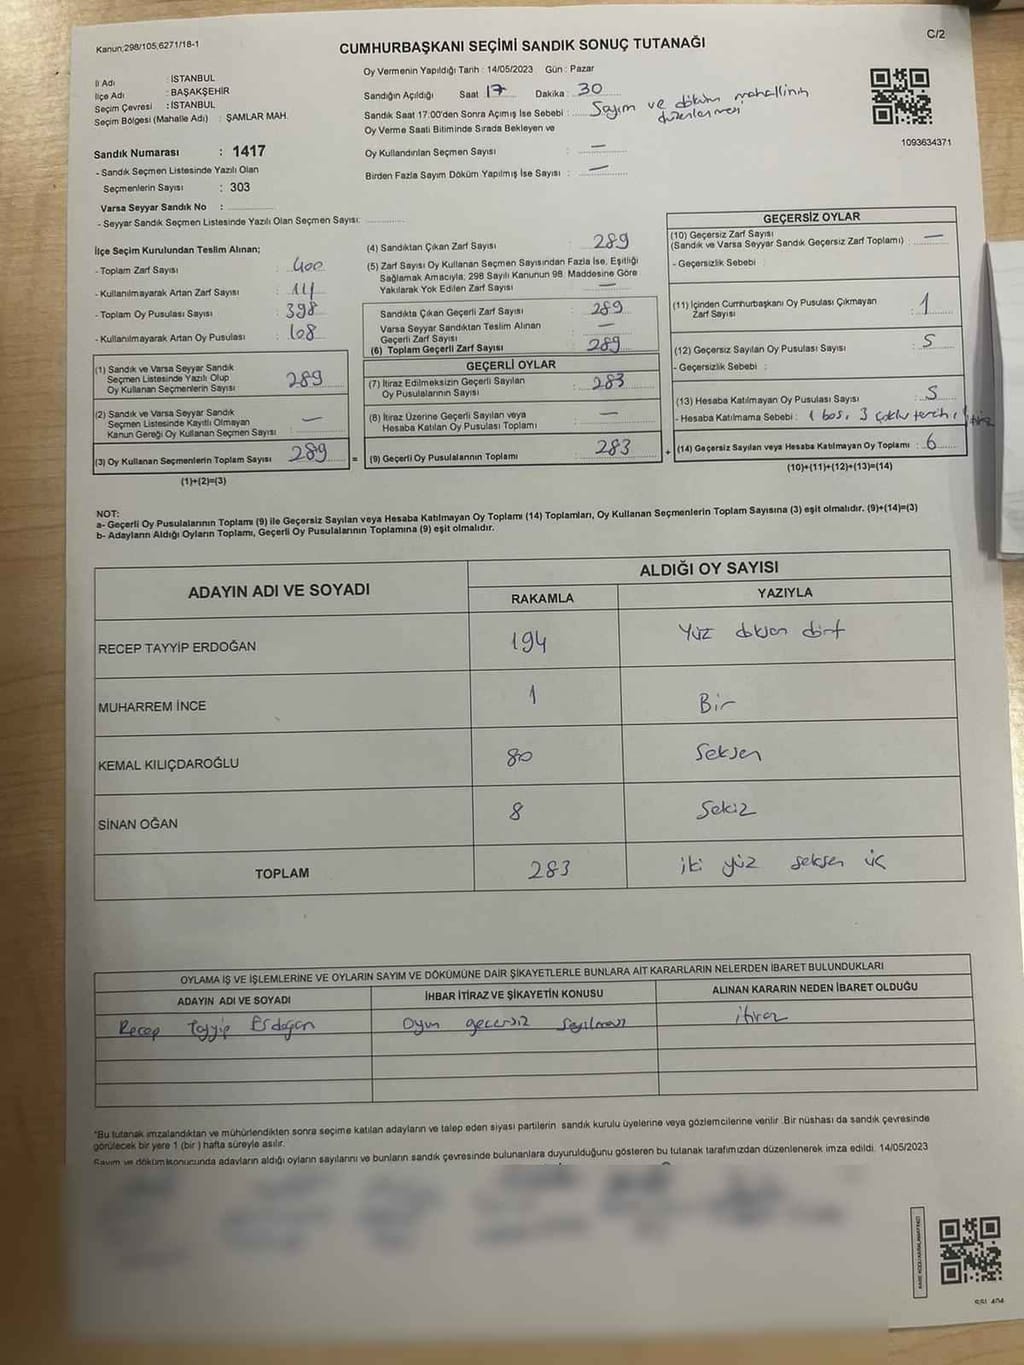 Kanun:298/105,6271/18-1
C/2
CUMHURBAŞKANI SEÇİMİ SANDIK SONUÇ TUTANAĞI
İl Adı : İSTANBUL
İlçe Adı : BAŞAKŞEHİR
Seçim Çevresi : İSTANBUL
Seçim Bölgesi (Mahalle Adı) : ŞAMLAR MAH.
Sandık Numarası : 1417
- Sandık Seçmen Listesinde Yazılı Olan
Seçmenlerin Sayısı : 303
Varsa Seyyar Sandık No :
- Seyyar Sandık Seçmen Listesinde Yazılı Olan Seçmen Sayısı:
Oy Vermenin Yapıldığı Tarih : 14/05/2023 Gün : Pazar
Sandığın Açıldığı Saat 17 Dakika : 30
Sandık Saat 17:00'den Sonra Açımış İse Sebebi : Sayım ve döküm mahallinin
düzenlenmesi
Oy Verme Saati Bitiminde Sırada Bekleyen ve
Oy Kullandırılan Seçmen Sayısı : —
Birden Fazla Sayım Döküm Yapılmış İse Sayısı : —
1093634371
İlçe Seçim Kurulundan Teslim Alınan;
- Toplam Zarf Sayısı : 400
- Kullanılmayarak Artan Zarf Sayısı : 111
- Toplam Oy Pusulası Sayısı : 398
- Kullanılmayarak Artan Oy Pusulası : 108
(1) Sandık ve Varsa Seyyar Sandık
Seçmen Listesinde Yazılı Olup
Oy Kullanan Seçmenlerin Sayısı : 289
(2) Sandık ve Varsa Seyyar Sandık
Seçmen Listesinde Kayıtlı Olmayan
Kanun Gereği Oy Kullanan Seçmen Sayısı : —
(3) Oy Kullanan Seçmenlerin Toplam Sayısı 289 =
(1)+(2)=(3)
(4) Sandıktan Çıkan Zarf Sayısı : 289
(5) Zarf Sayısı Oy Kullanan Seçmen Sayısından Fazla İse, Eşitliği
Sağlamak Amacıyla; 298 Sayılı Kanunun 98. Maddesine Göre
Yakılarak Yok Edilen Zarf Sayısı : —
Sandıkta Çıkan Geçerli Zarf Sayısı : 289
Varsa Seyyar Sandıktan Teslim Alınan
Geçerli Zarf Sayısı : —
(6) Toplam Geçerli Zarf Sayısı : 289
GEÇERLİ OYLAR
(7) İtiraz Edilmeksizin Geçerli Sayılan
Oy Pusulalarının Sayısı : 283
(8) İtiraz Üzerine Geçerli Sayılan veya
Hesaba Katılan Oy Pusulası Toplamı : —
(9) Geçerli Oy Pusulalarının Toplamı : 283 +
GEÇERSİZ OYLAR
(10) Geçersiz Zarf Sayısı
(Sandık ve Varsa Seyyar Sandık Geçersiz Zarf Toplamı) : —
- Geçersizlik Sebebi :
(11) İçinden Cumhurbaşkanı Oy Pusulası Çıkmayan
Zarf Sayısı : 1
(12) Geçersiz Sayılan Oy Pusulası Sayısı : 5
- Geçersizlik Sebebi :
(13) Hesaba Katılmayan Oy Pusulası Sayısı : 5
- Hesaba Katılmama Sebebi : 1 boş, 3 çoklu tercih, 1 itiraz
(14) Geçersiz Sayılan veya Hesaba Katılmayan Oy Toplamı : 6
(10)+(11)+(12)+(13)=(14)
NOT:
a- Geçerli Oy Pusulalarının Toplamı (9) ile Geçersiz Sayılan veya Hesaba Katılmayan Oy Toplamı (14) Toplamları, Oy Kullanan Seçmenlerin Toplam Sayısına (3) eşit olmalıdır. (9)+(14)=(3)
b- Adayların Aldığı Oyların Toplamı, Geçerli Oy Pusulalarının Toplamına (9) eşit olmalıdır.
ADAYIN ADI VE SOYADI ALDIĞI OY SAYISI
RAKAMLA YAZIYLA
RECEP TAYYİP ERDOĞAN 194 Yüz doksan dört
MUHARREM İNCE 1 Bir
KEMAL KILIÇDAROĞLU 80 Seksen
SİNAN OĞAN 8 Sekiz
TOPLAM 283 iki yüz seksen üç
OYLAMA İŞ VE İŞLEMLERİNE VE OYLARIN SAYIM VE DÖKÜMÜNE DAİR ŞİKAYETLERLE BUNLARA AİT KARARLARIN NELERDEN İBARET BULUNDUKLARI
ADAYIN ADI VE SOYADI İHBAR İTİRAZ VE ŞİKAYETİN KONUSU ALINAN KARARIN NEDEN İBARET OLDUĞU
Recep Tayyip Erdoğan Oyun geçersiz sayılması itiraz
*Bu tutanak imzalandıktan ve mühürlendikten sonra seçime katılan adayların ve talep eden siyasi partilerin sandık kurulu üyelerine veya gözlemcilerine verilir. Bir nüshası da sandık çevresinde
görülecek bir yere 1 (bir) hafta süreyle asılır.
Sayım ve döküm sonucunda adayların aldığı oyların sayılarını ve bunların sandık çevresinde bulunanlara duyurulduğunu gösteren bu tutanak tarafımızdan düzenlenerek imza edildi. 14/05/2023